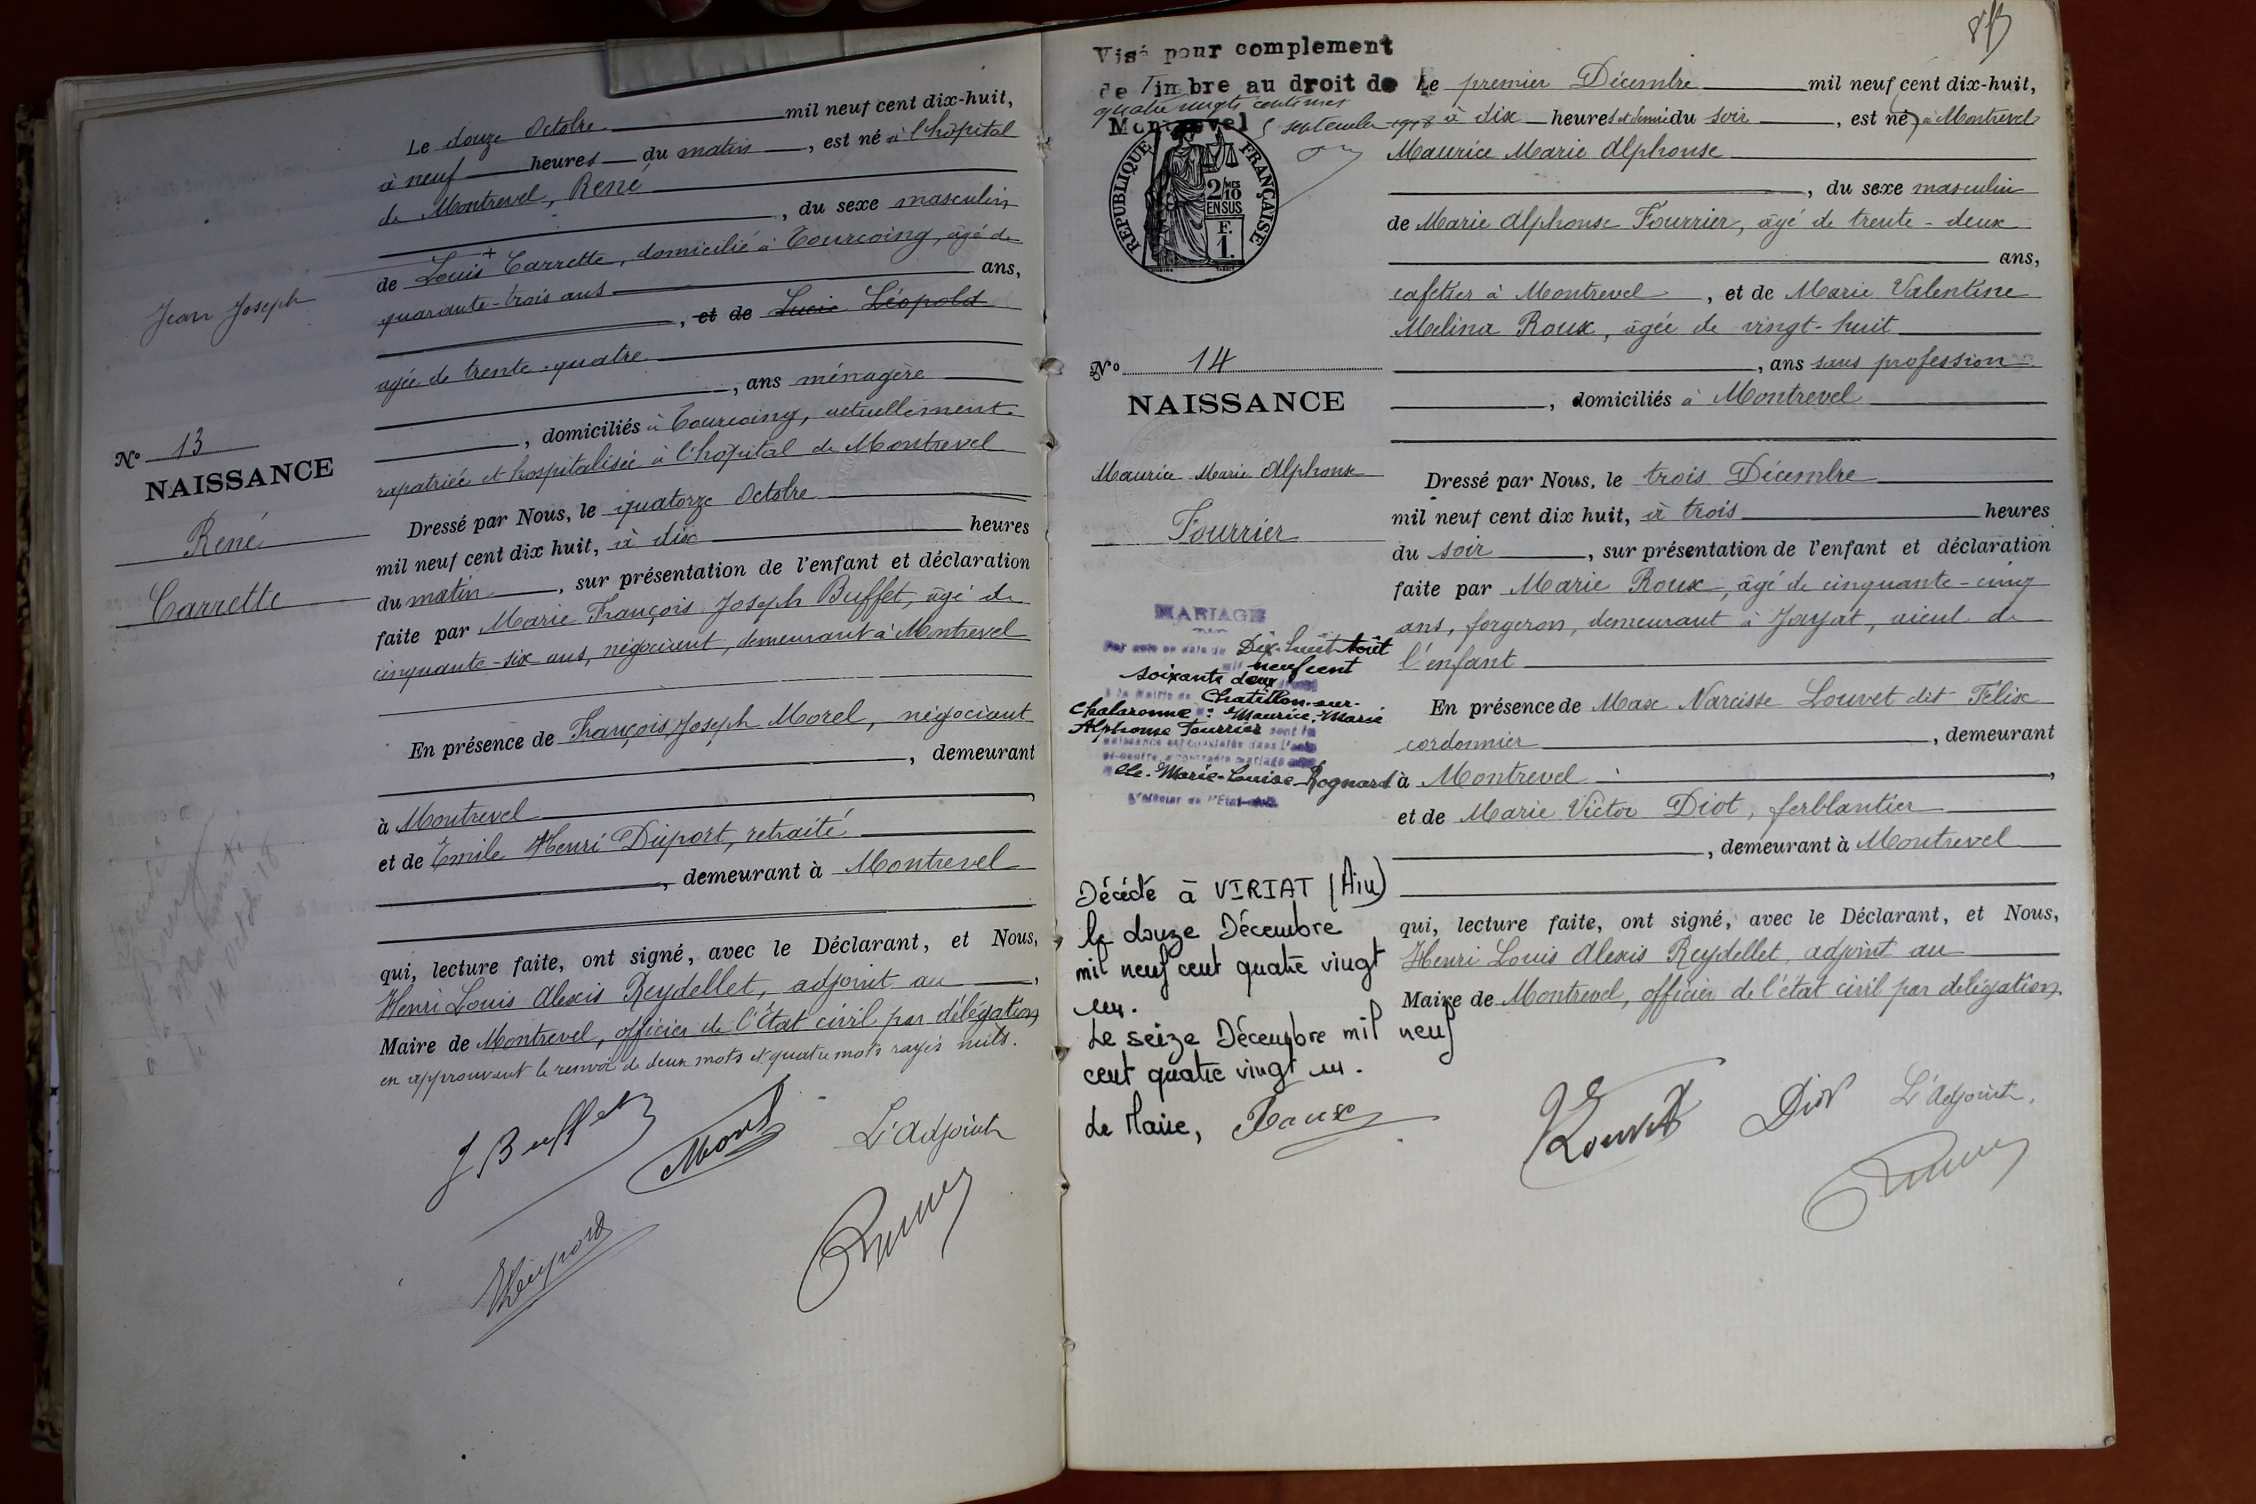 Le douze Octobre mil neuf cent dix-huit,
à neuf heures du matin, est né à l'hôpital
de Montrevel, René
, du sexe masculin
de Louis + Carrette, domicilié à Tourcoing, âgé de
Jean Joseph
quarante-trois ans ans,
, et de Lucie Léopold
agée de trente-quatre
, ans ménagère
, domiciliés à Tourcoing, actuellement
rapatriée et hospitalisée à l'hôpital de Montrevel
No 13
NAISSANCE
René
Carrette
Dressé par Nous, le quatorze Octobre
mil neuf cent dix huit, à dix heures
du matin, sur présentation de l'enfant et déclaration
faite par Marie François Joseph Buffet, âgé de
cinquante-six ans, négociant, demeurant à Montrevel
En présence de François Joseph Morel, négociant
, demeurant
à Montrevel,
et de Emile Henri Duport, retraité
, demeurant à Montrevel
qui, lecture faite, ont signé, avec le Déclarant, et Nous,
Henri Louis Alexis Reydellet, adjoint au,
Maire de Montrevel, officier de l'état civil par délégation
en approuvant le renvoi de deux mots et quatre mots rayés nuls.
J Buffet
Morel
L'Adjoint
Duport
813
Visé pour complement
de Timbre au droit de
quatre vingts centimes
Montrevel 5 septembre 1918
RÉPUBLIQUE FRANÇAISE
2/10
MES
EN SUS
F.
1.
Le premier Décembre mil neuf cent dix-huit,
à dix heures et demi du soir, est né à Montrevel
Maurice Marie Alphonse
, du sexe masculin
de Marie Alphonse Fourrier, âgé de trente-deux
ans,
cafetier à Montrevel, et de Marie Valentine
Melina Roux, âgée de vingt-huit
, ans sans profession
, domiciliés à Montrevel
No 14
NAISSANCE
Maurice Marie Alphonse
Fourrier
Dressé par Nous, le trois Décembre
mil neuf cent dix huit, à trois heures
du soir, sur présentation de l'enfant et déclaration
faite par Marie Roux, âgé de cinquante-cinq
ans, forgeron, demeurant à Jayat, aieul de
l'enfant
En présence de Max Narcisse Louvet dit Felix
cordonnier, demeurant
à Montrevel,
et de Marie Victor Diot, ferblantier
, demeurant à Montrevel
qui, lecture faite, ont signé, avec le Déclarant, et Nous,
Henri Louis Alexis Reydellet, adjoint au
Maire de Montrevel, officier de l'état civil par délégation
MARIAGE
Par acte en date du Dix-huit Août
mil neuf cent
soixante deux
à la Mairie de Chatillon-sur-
Chalaronne: Maurice-Marie
Alphonse Fourrier dont la
naissance est constatée dans l'acte
ci-contre a contracté mariage avec
Elle. Marie-Louise Rognard
L'Officier de l'Etat-civil
Décédé à VIRIAT (Ain)
le douze Décembre
mil neuf cent quatre vingt
un.
Le seize Décembre mil neuf
cent quatre vingt un.
Le Maire,
Louvet
Diot
L'Adjoint.